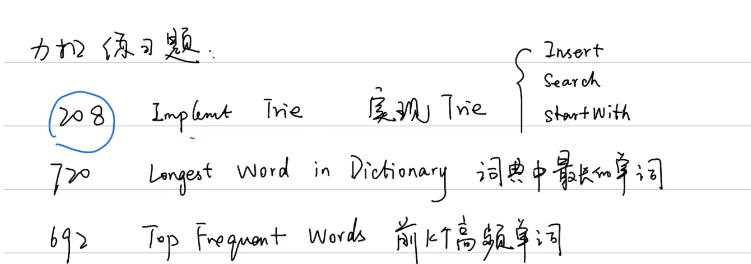 力扣 练习题:
208 Implemt Trie 实现 Trie { Insert
Search
StartWith
720 Longest Word in Dictionary 词典中最长的单词
692 Top Frequent Words 前K个高频单词